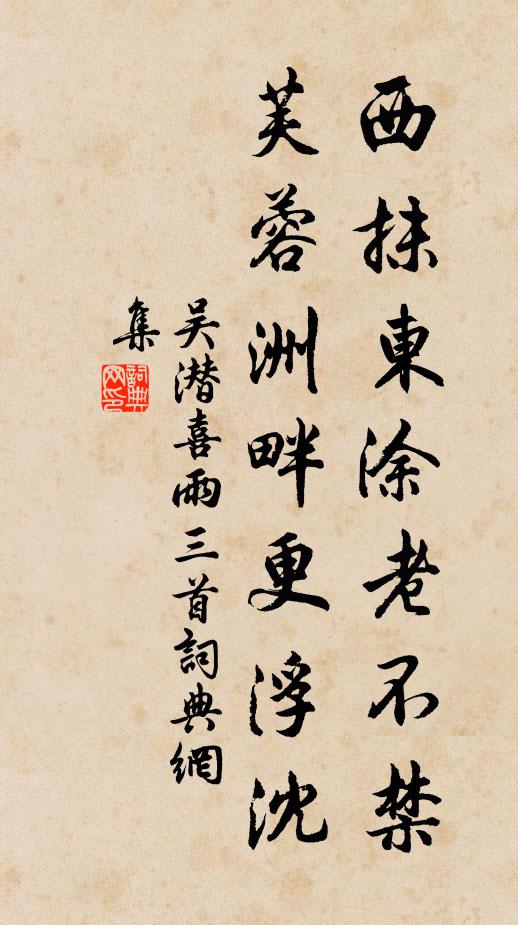 西抹東涂老不禁
芙蓉洲畔更浮沈
吴潜喜雨三首詞典網
集
詞典網印